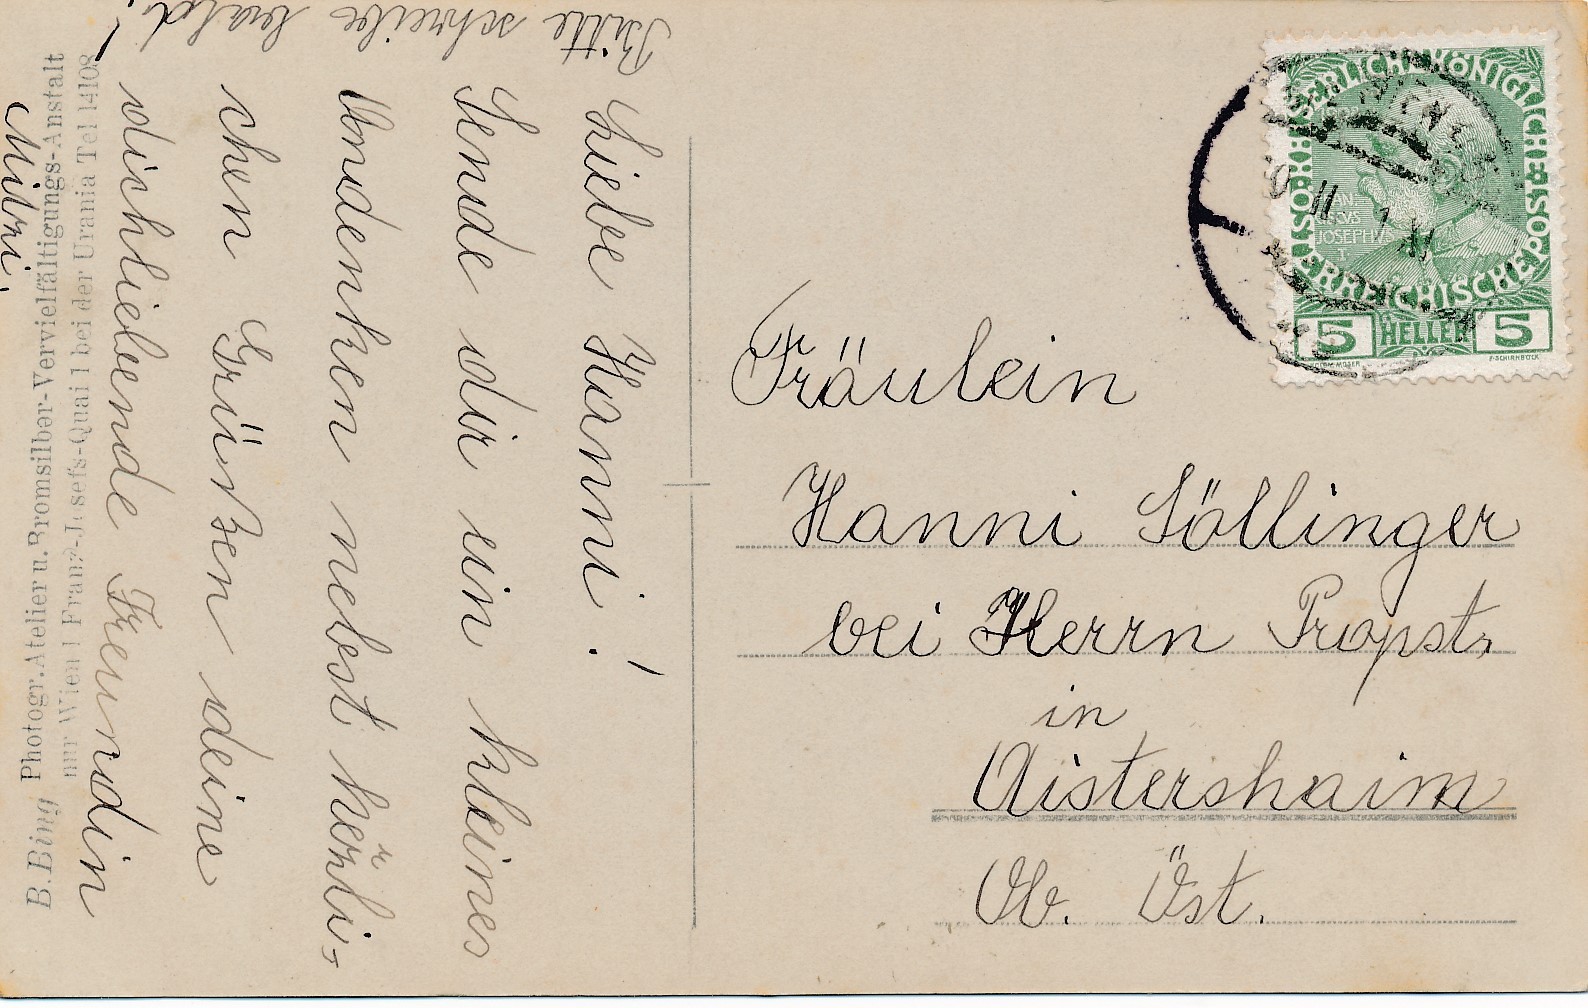 Liebe Hanni!
Sende dir ein kleines
Andenken nebst herzli-
chen Grüßen deine
dichliebende Freundin
Mitzi.
Bitte schreibe bald!
Fräulein
Hanni Söllinger
bei Herrn Propst,
in
Aistershaim
Ob. Öst.
B. Bing Photogr. Atelier u. Bromsilber-Vervielfältigungs-Anstalt
nur Wien I Franz-Josefs-Quai 1 bei der Urania Tel 14108
KAISERLICHE KÖNIGLICHE
ÖSTERREICHISCHE POST
JOSEPHVS
I
5 HELLER 5
WIEN
II